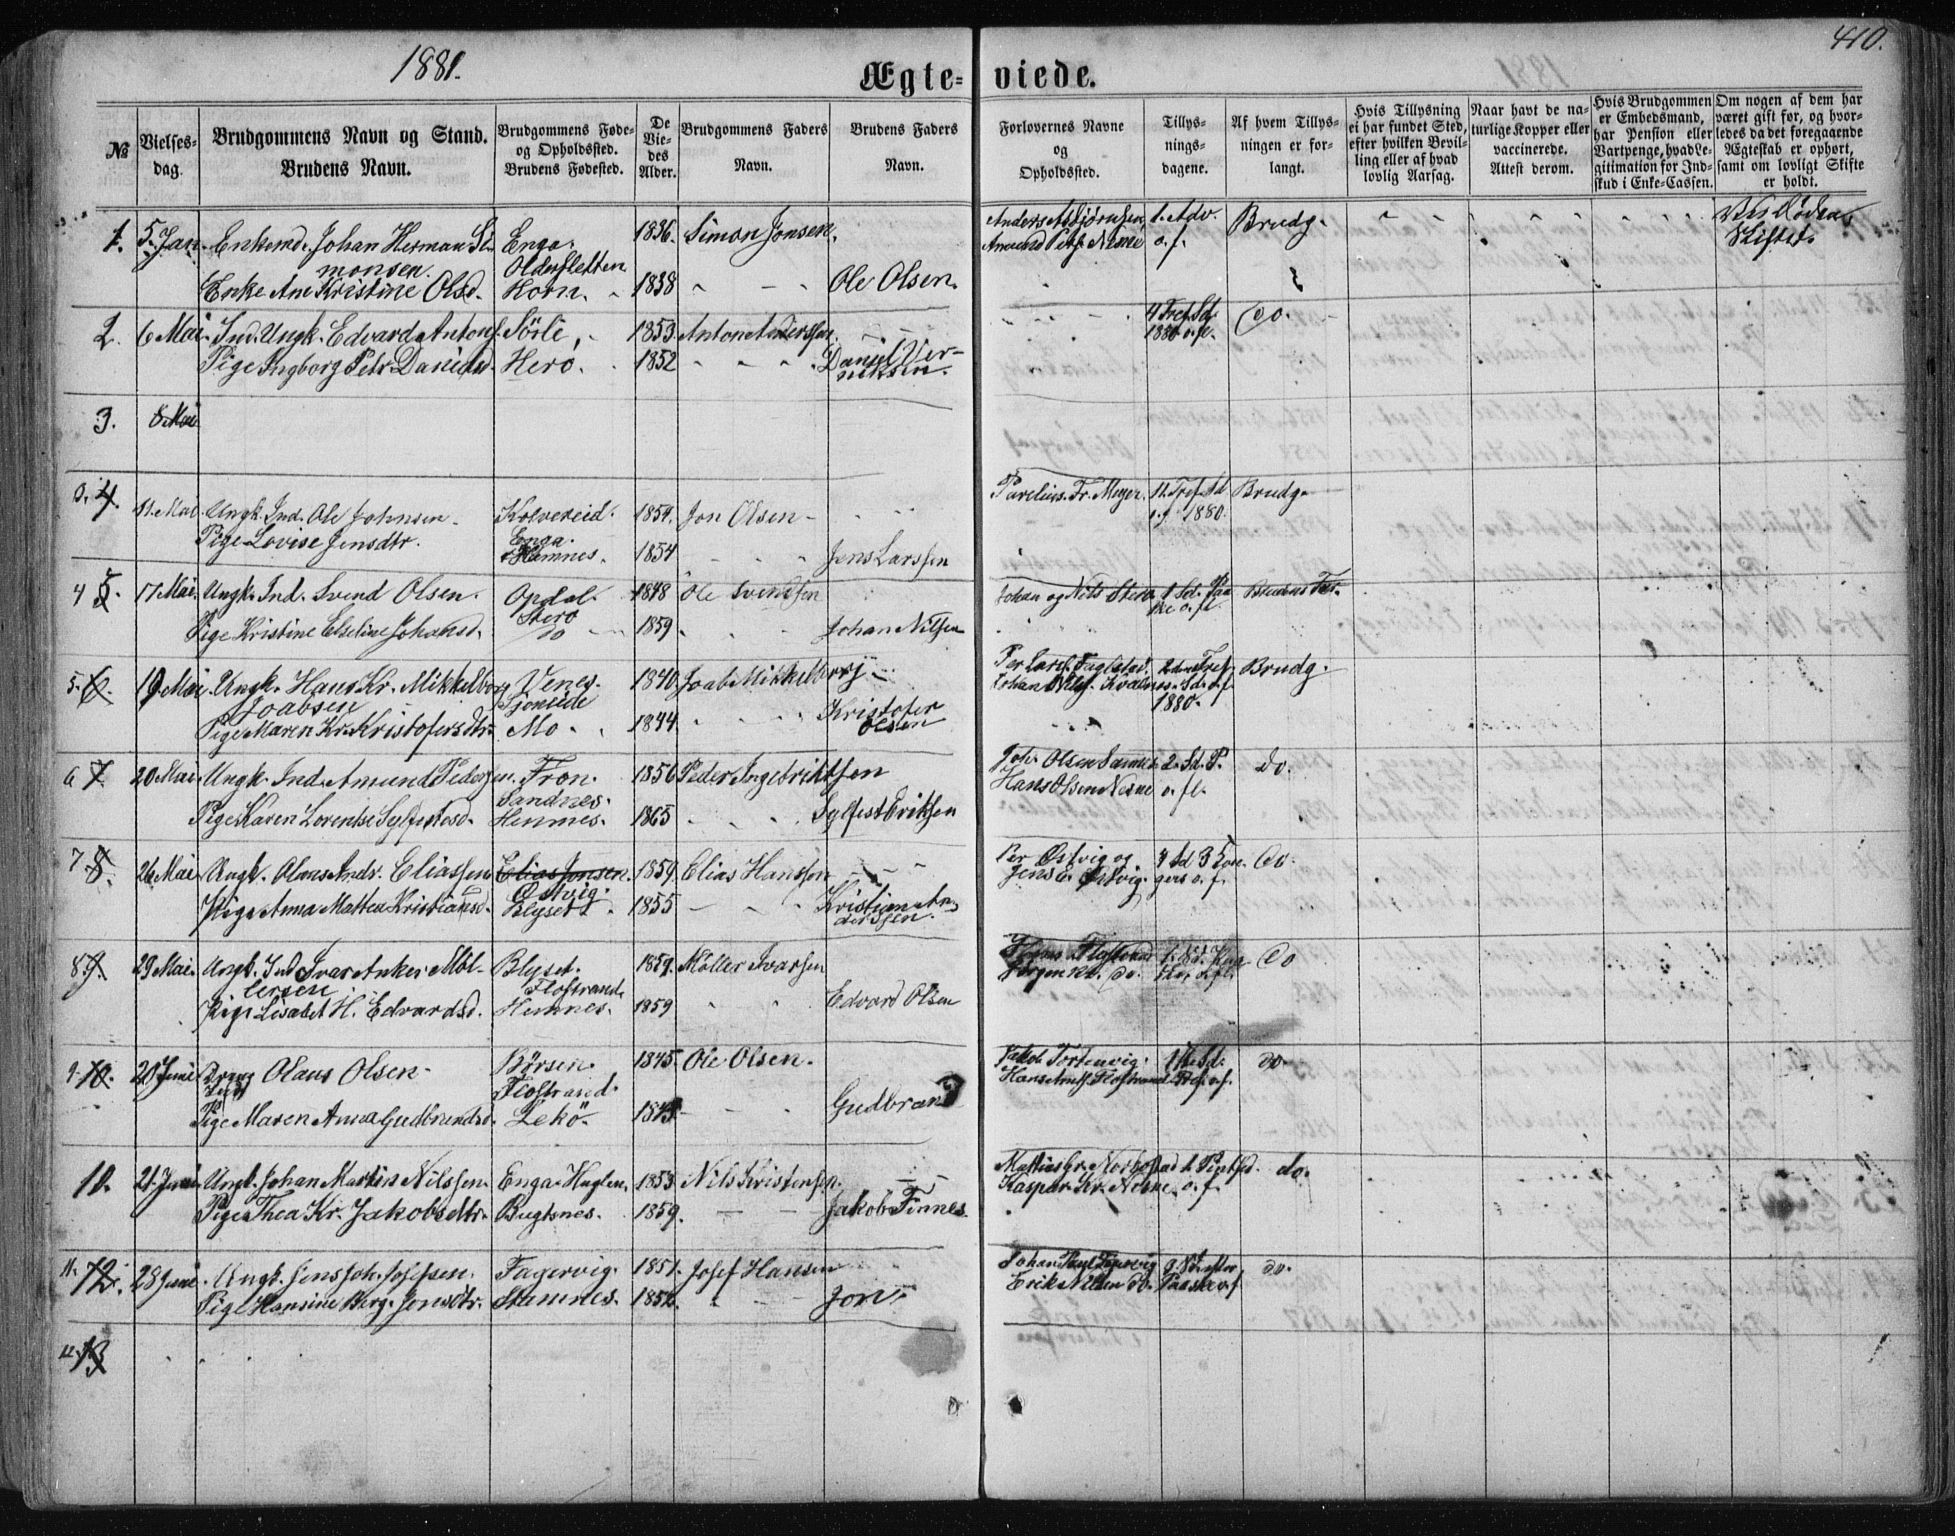 1881.
410.
Ægte-
viede.
№
Vielses-
dag.
Brudgommens Navn og Stand.
Brudens Navn.
Brudgommens Føde-
og Opholdssted.
Brudens Fødested.
De
Vie-
des
Alder.
Brudgommens Faders
Navn.
Brudens Faders
Navn.
Forlovernes Navne
og
Opholdssted.
Tillys-
nings-
dagene.
Af hvem Tillys-
ningen er for-
langt.
Hvis Tillysning
ei har fundet Sted,
efter hvilken Bevil-
ling eller af hvad
lovlig Aarsag.
Naar havt de na-
turlige Kopper eller
vaccinerede.
Attest derom.
Hvis Brudgommen
er Embedsmand,
har Pension eller
Vartpenge, hvad Le-
gitimation for Ind-
skud i Enke-Cassen.
Om nogen af dem har
været gift før, og hvor-
ledes da det foregaaende
Ægteskab er ophørt,
samt om lovligt Skifte
er holdt.
1. 5. Jan. Enkemd. Johan Herman Si- Enga. 1836. Simon Jonsen. Anders Asbjørnsen, 1. Adv. Brudg.
monsen. Olderfletten o. f. Skiftet.
Enke Ane Kristine Olsd. Horn. 1838 Ole Olsen.
2. 6 Mai. Ind. Ungk. Edvard Antons. Sörli, 1853. Anton Andersen. 4 Tref. Sd. do.
1880 o. fl.
Pige Ingborg Petr. Danielsd. Hero. 1852 Daniel Ver-
3. 8 Mai
3. 4. 11. Mai Ungk. Ind. Ole Johnsen. Kolvereid. 1854. Jon Olsen Parelius. Fr. Meyer. 11. Tref. Sd Brudg.
Enga. 1880.
Pige Lovise Jensdtr. Hemnes. 1854 Jens Larssen
4 5. 17 Mai. Ungk. Ind. Svend Olsen. Opdal. 1848 Ole Svendsen Johan og Nils Stero. 1. Sd. Paa Brudens Far.
Stero ske o. fl.
Pige Kristine Elseline Johansd. do 1859. Johan Nilsen
5. 6. 19 Mai. Ungk. Hans Kr. Mikkelborg Venes. 1840 Joab Mikkelborg Brudg.
Joabsen 1880.
Pige Maren Kr. Kristofersdtr. Mo. 1844. Kristofer
Olsen
6 7 20 Mai. Ungk. Ind. Amund Pedersen. Fron. 1856 Peder Ingebriktsen Joh. Olsen 2. Sd. P. do.
Sandnes. Hans Olsen Nesne o. fl.
Pige Karen Lorentse Sylfestesd. Hemnes. 1865 Sylfest Eriksen
7 8. 26 Mai. Ungk. Olaus Andr. Eliassen Elias Jonsen. 1859. Elias Hanssen Per Østvig og 4 Sd. 3 Kon- do.
Østvig. Jens E. Østvig. gers o. f.
Pige Anna Mattea Kristiansd. Blyset. 1855 Kristian An-
derssen.
8 9. 29 Mai. Ungk. Ind. Ivar Anker Möl- Blyset. 1859. Möller Ivarsen do
lersen Flostrand.
Pige Lisabet H. Edvardsd. Hemnes. 1859 Edvard Olsen
9. 10. 20 Juni Olaus Olsen. Börsen. 1845. Ole Olsen. Jakob Tortenvig. do.
Flostrand.
Pige Maren Anna Gudbrandsd. Lekö. 1843 Gudbrand
10. 21 Juni Ungk. Johan Martin Nilssen. Enga Huglen. 1853. Nils Kristensen. do.
Kaspar Kr. Nesne. o. f.
Pige Thea Kr. Jakobsdtr. Bugtsnes. 1859. Jakob Finnes
11. 12. 28 Juni. Ungk. Jens Joh. Josefsen. Fagervig. 1851. Josef Hansen Johan Paul Fagervig do.
Erik Nilsen do.
Pige Hansine Berg. Jonsdtr. Stemnes. 1852. Jon.
12. 13